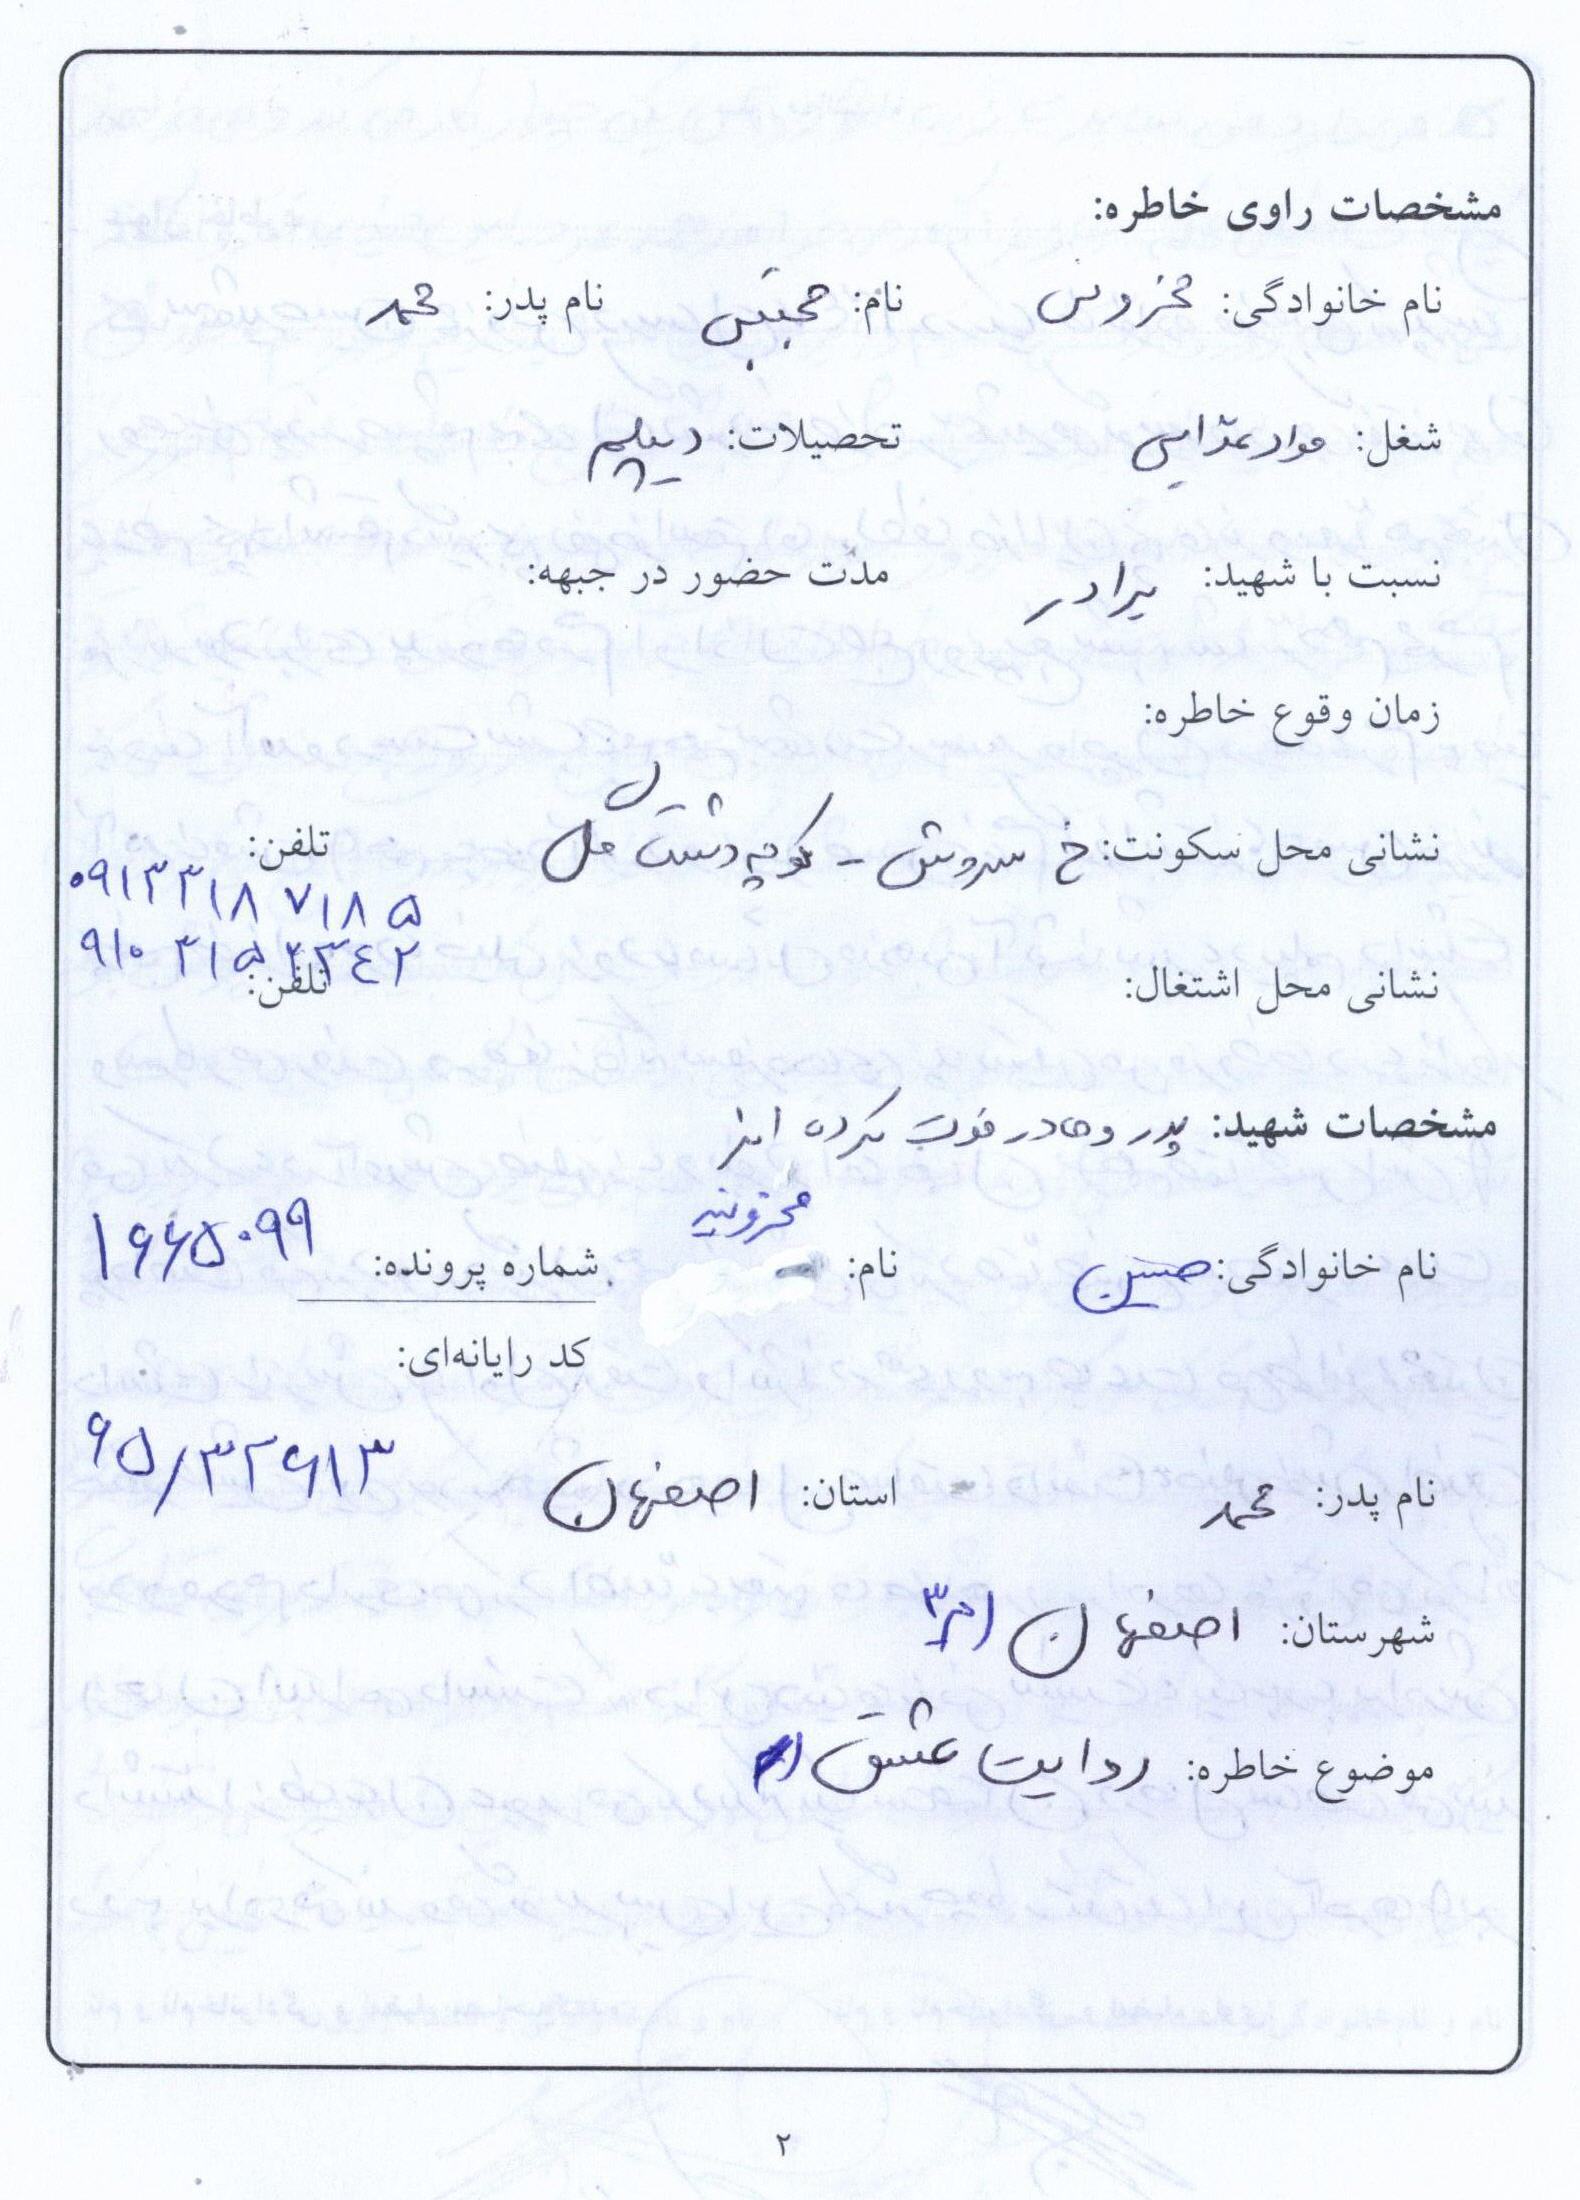 مشخصات راوی خاطره:
نام خانوادگی: مخزونی نام: مجتبی نام پدر: محمد
شغل: مواد غذایی تحصیلات: دیپلم
نسبت با شهید: برادر مدّت حضور در جبهه:
زمان وقوع خاطره:
نشانی محل سکونت: خ سروش - کوچه دشت گل تلفن:
۰۹۱۳۳۱۸۷۱۸۵
۹۱۰۳۱۵۲۳۴۲
نشانی محل اشتغال: تلفن:
مشخصات شهید: پدر و مادر فوت کرده اند
نام خانوادگی: حسین نام: مخزونیه شماره پرونده: ۱۶۶۵۰۹۹
کد رایانه‌ای:
نام پدر: محمد استان: اصفهان ۶۵/۳۲۶۱۳
شهرستان: اصفهان
موضوع خاطره: روایت عشق
۲